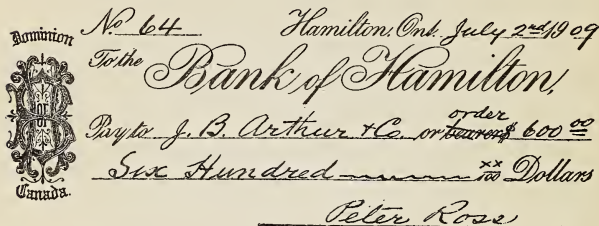 Dominion
of
Canada.
No 64 Hamilton, Ont. July 2nd 1909
To the Bank of Hamilton,
order
Pay to J. B. Arthur & Co. or bearer $ 600 00
Six Hundred xx/100 Dollars
Peter Ross